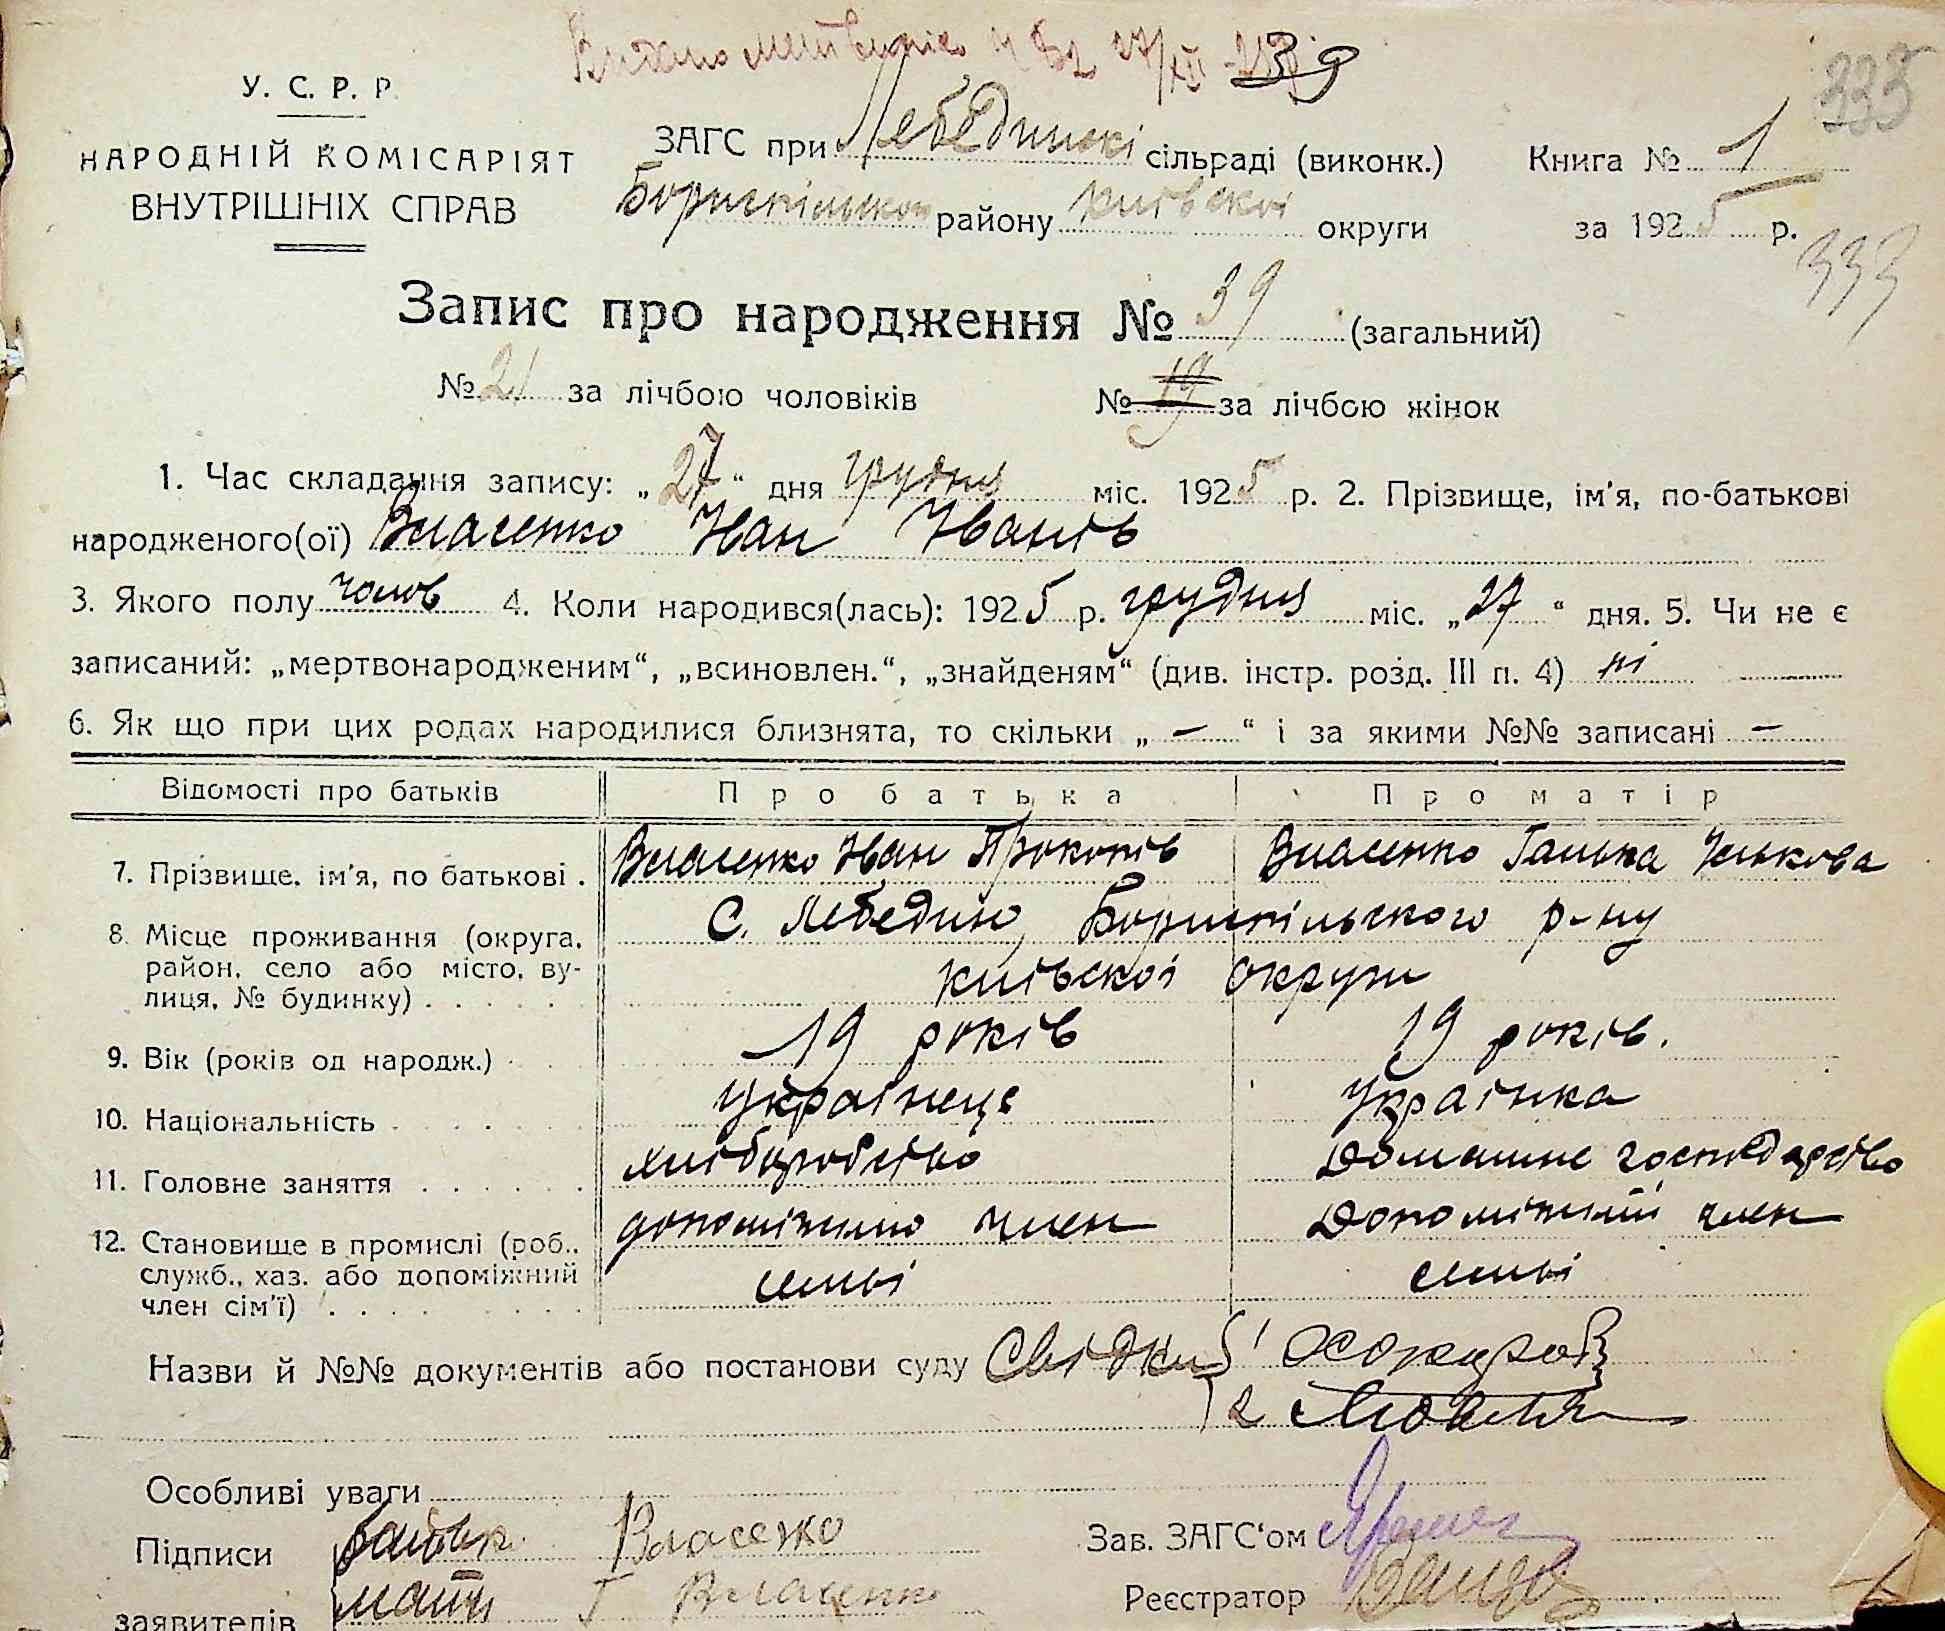 39
У. С. Р. Р.
335
НАРОДНІЙ КОМІСАРІЯТ
ВНУТРІШНІХ СПРАВ
ЗАГС при Лебединскі сільраді (виконк.) Книга № 1
Бориспільскоі району київскоі округи за 1925 р.
333
Запис про народження № 39 (загальний)
№ 21 за лічбою чоловіків № 19 за лічбою жінок
1. Час складання запису: „27“ дня грудня міс. 1925 р. 2. Прізвище, ім'я, по-батькові
народженого(ої) Власенко Іван Іванів
3. Якого полу чолов 4. Коли народився(лась): 1925 р. грудня міс. „27“ дня. 5. Чи не є
записаний: „мертвонародженим“, „всиновлен.“, „знайденям“ (див. інстр. розд. III п. 4) ні
6. Як що при цих родах народилися близнята, то скільки „ — “ і за якими №№ записані —
Відомості про батьків Про батька Про матір
7. Прізвище, ім'я, по батькові . Власенко Іван Прокопів Власенко Ганька Яськова
8. Місце проживання (округа, район, село або місто, вулиця, № будинку) . . . . . С. Лебедин, Бориспільского р-ну
київскоі округи
9. Вік (років од народж.) 19 років 19 років.
10. Національність українець українка
11. Головне заняття . . . . . . хліборобство домашнє господарство
12. Становище в промислі (роб., допоміжний член допоміжний член
служб., хаз. або допоміжний семьі семьі
член сім'ї) . . . . . . . . .
Назви й №№ документів або постанови суду Свідки 1
2
Особливі уваги
Підписи батьк Власенко Зав. ЗАГС'ом
заявителів мати Г Власенко Реєстратор